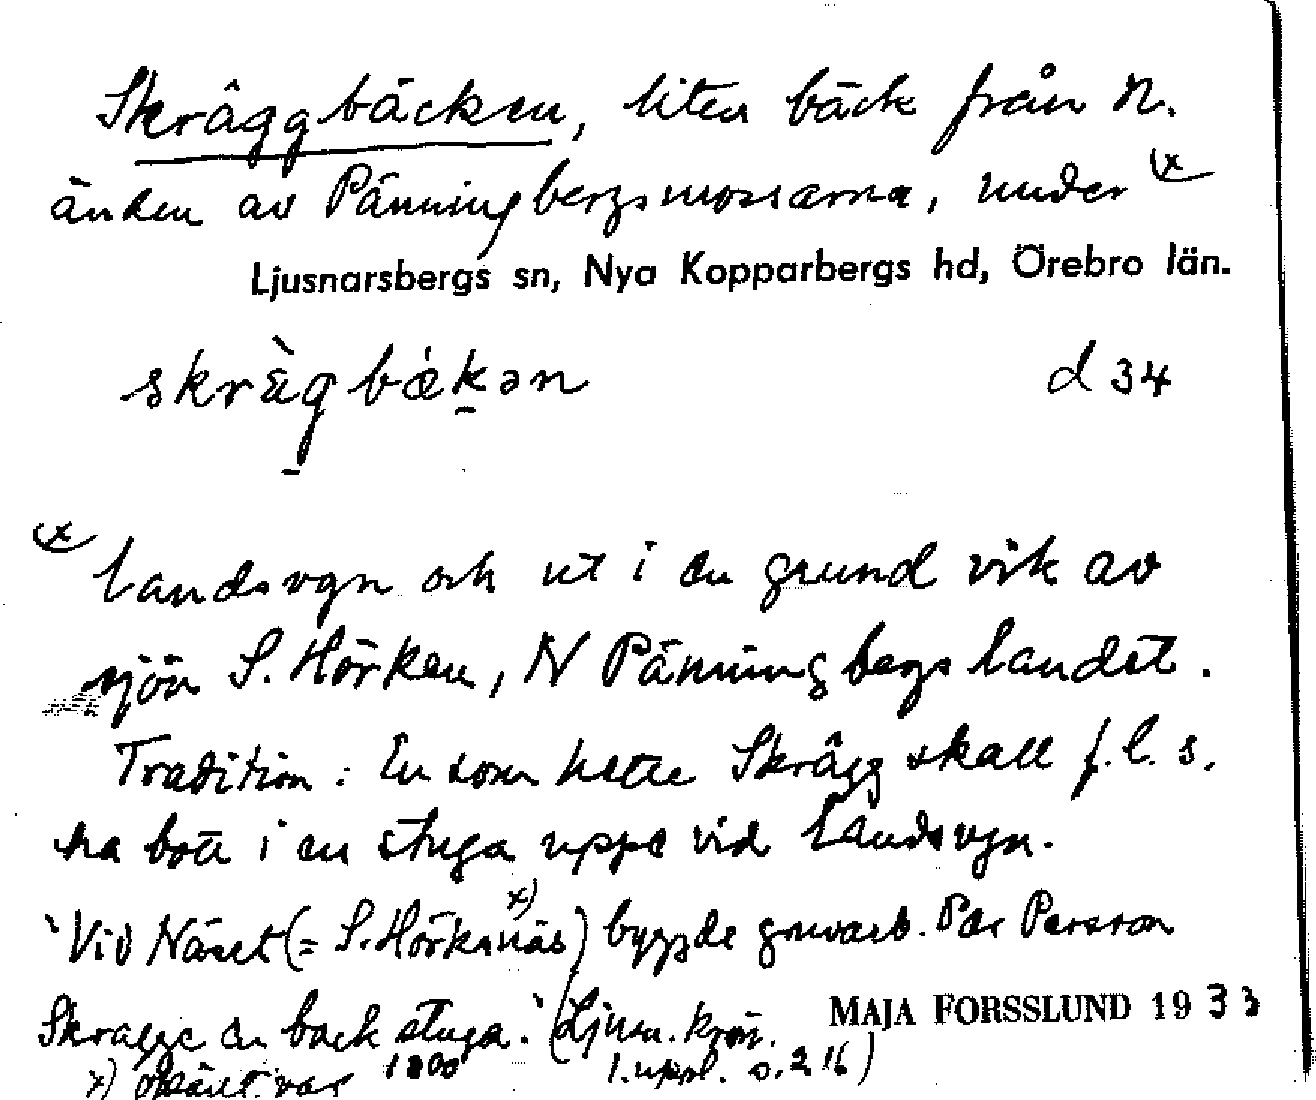 Skräggbäcken, liten bäck från N.
änden av Pänningbergsmossarna, under (x
Ljusnarsbergs sn, Nya Kopparbergs hd, Örebro län.
skrὲgbækən d 34
(x landsvgn och ut i en grund vik av
sjön S. Hörken, N Pänningbergslandet.
Tradition: En som hette Skrägg skall f.l.s.
ha bott i en stuga uppe vid landsvgn.
"Vid Näset (= S. Hörksnäs) x) byggde gruvarb. Per Persson
Skragge en backstuga." (Ljusn. krön.
MAJA FORSSLUND 1933
x) okänt var 1800 1. uppl. s. 216)